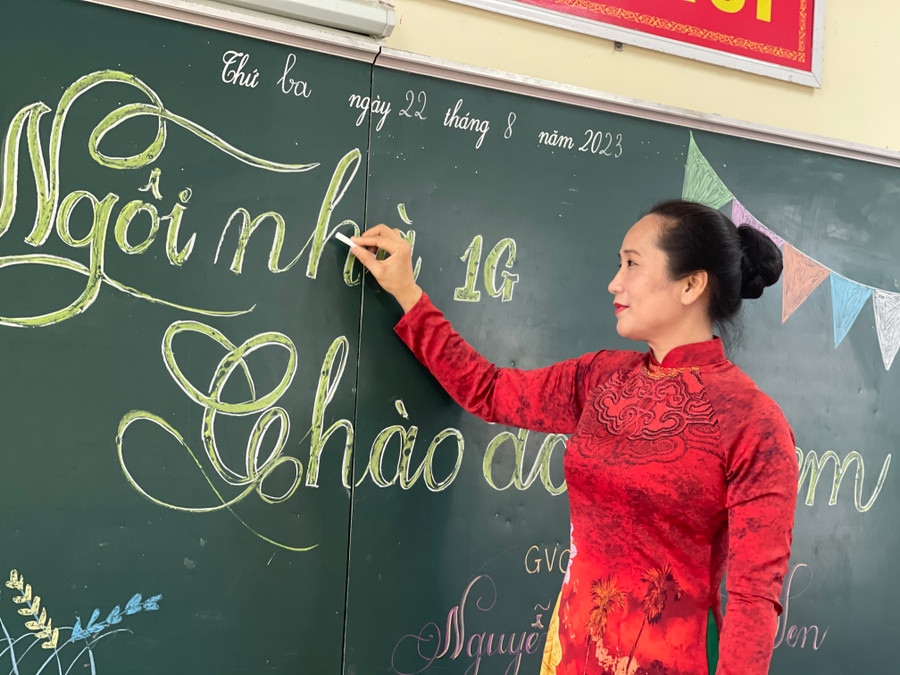 Thứ ba ngày 22 tháng 8 năm 2023
Ngôi nhà 1G
Chào đó em
GVC
Nguyễ